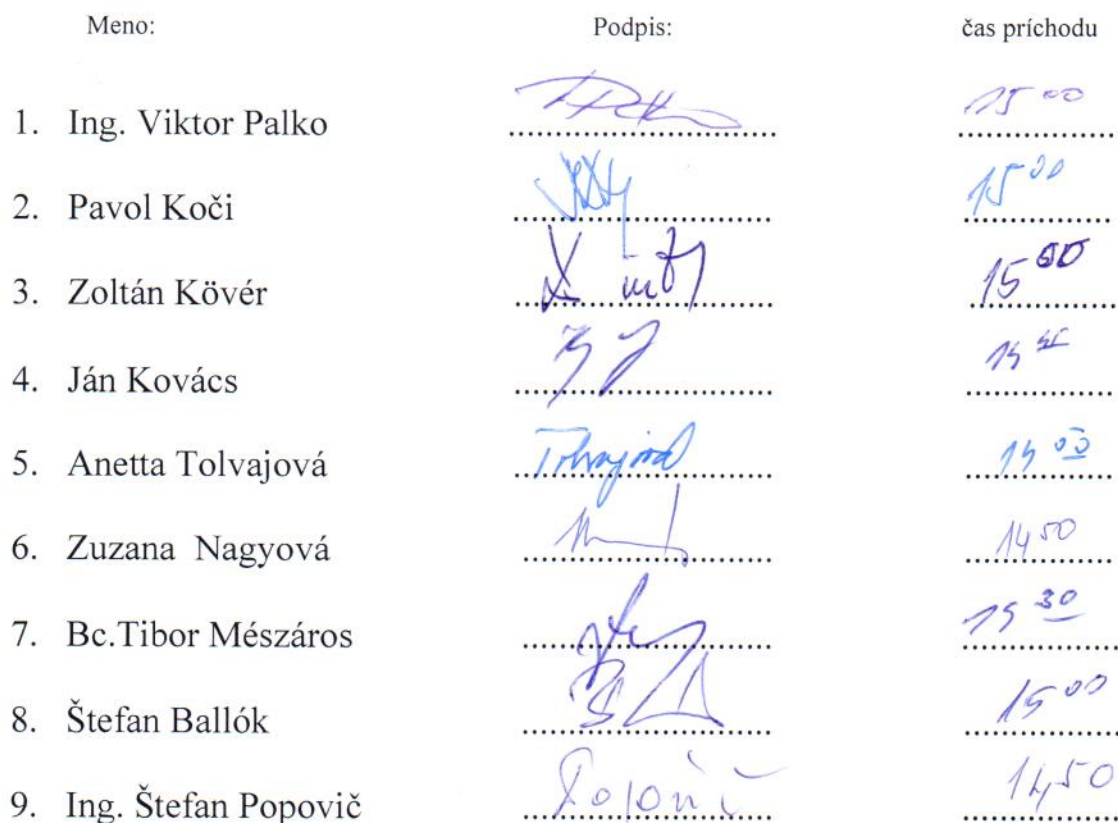 Meno: Podpis: čas príchodu
1. Ing. Viktor Palko 15 00
2. Pavol Koči 15 00
3. Zoltán Kövér 15 00
4. Ján Kovács
5. Anetta Tolvajová Tolvajová
6. Zuzana Nagyová 14 50
7. Bc.Tibor Mészáros 15 30
8. Štefan Ballók 15 00
9. Ing. Štefan Popovič Popovič 14,50